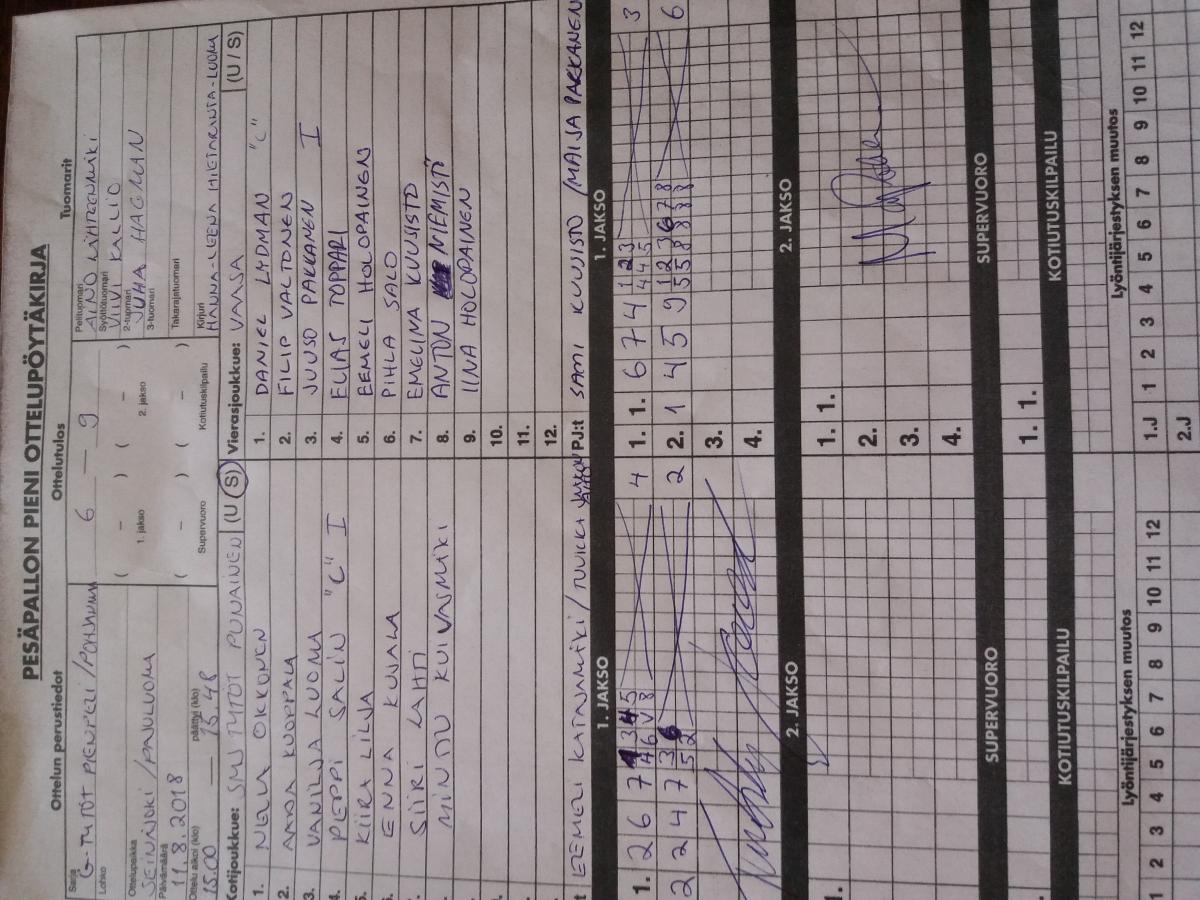 PESÄPALLON PIENI OTTELUPÖYTÄKIRJA
Ottelun perustiedot
Ottelutulos
Tuomarit
Sarja
G-TYTÖT PIENPELI/POHJANMAA
Lohko
Ottelupaikka
SEINÄJOKI/PAJULUOMA
Päivämäärä
11.8.2018
Ottelu alkoi (klo)
15.00
päättyi (klo)
15.48
6 — 9
( – ) ( – )
1. jakso
2. jakso
( – ) ( – )
Supervuoro
Kotiutuskilpailu
Pelituomari
AINO LÄHTEENMÄKI
Syöttötuomari
VIIVI KALLIO
2-tuomari
JUHA HAGMAN
3-tuomari
Takarajatuomari
Kirjuri
HANNA-LEENA HIETARANTA-LUOMA
Kotijoukkue: SMJ TYTÖT PUNAINEN (U / S)
1. NELLA OKKONEN
2. AADA KUOPPALA
3. VANILJA LUOMA
4. PIEPPI SALIN "C" I
5. KIIRA LILJA
6. ENNA KUJALA
7. SIIRI LAHTI
8. MINTTU KUIVASMÄKI
9.
10.
11.
12.
Vierasjoukkue: VAASA (U / S)
1. DANIEL LYDMAN "C"
2. FILIP VALTONEN
3. JUUSO PAKKANEN I
4. ELIAS TOPPARI
5. EEMELI HOLOPAINEN
6. PIHLA SALO
7. EMELINA KUUSISTO
8. ANTON NIEMISTÖ
9. IINA HOLOPAINEN
10.
11.
12.
PJ:t SAMI KUUSISTO / MAIJA PAKKANEN
1. JAKSO
1. JAKSO
1. 2 6 7
4
2 2 4 7
2
1. 1. 6 7 4
1 2 3
4 4 5
3
2. 1 4 5 9
1 2 3 6 7 8
5 5 8 8 8 8
6
3.
4.
2. JAKSO
2. JAKSO
1. 1.
2.
3.
4.
SUPERVUORO
SUPERVUORO
1. 1.
KOTIUTUSKILPAILU
KOTIUTUSKILPAILU
Lyöntijärjestyksen muutos
Lyöntijärjestyksen muutos
1 2 3 4 5 6 7 8 9 10 11 12
1.J 1 2 3 4 5 6 7 8 9 10 11 12
2.J